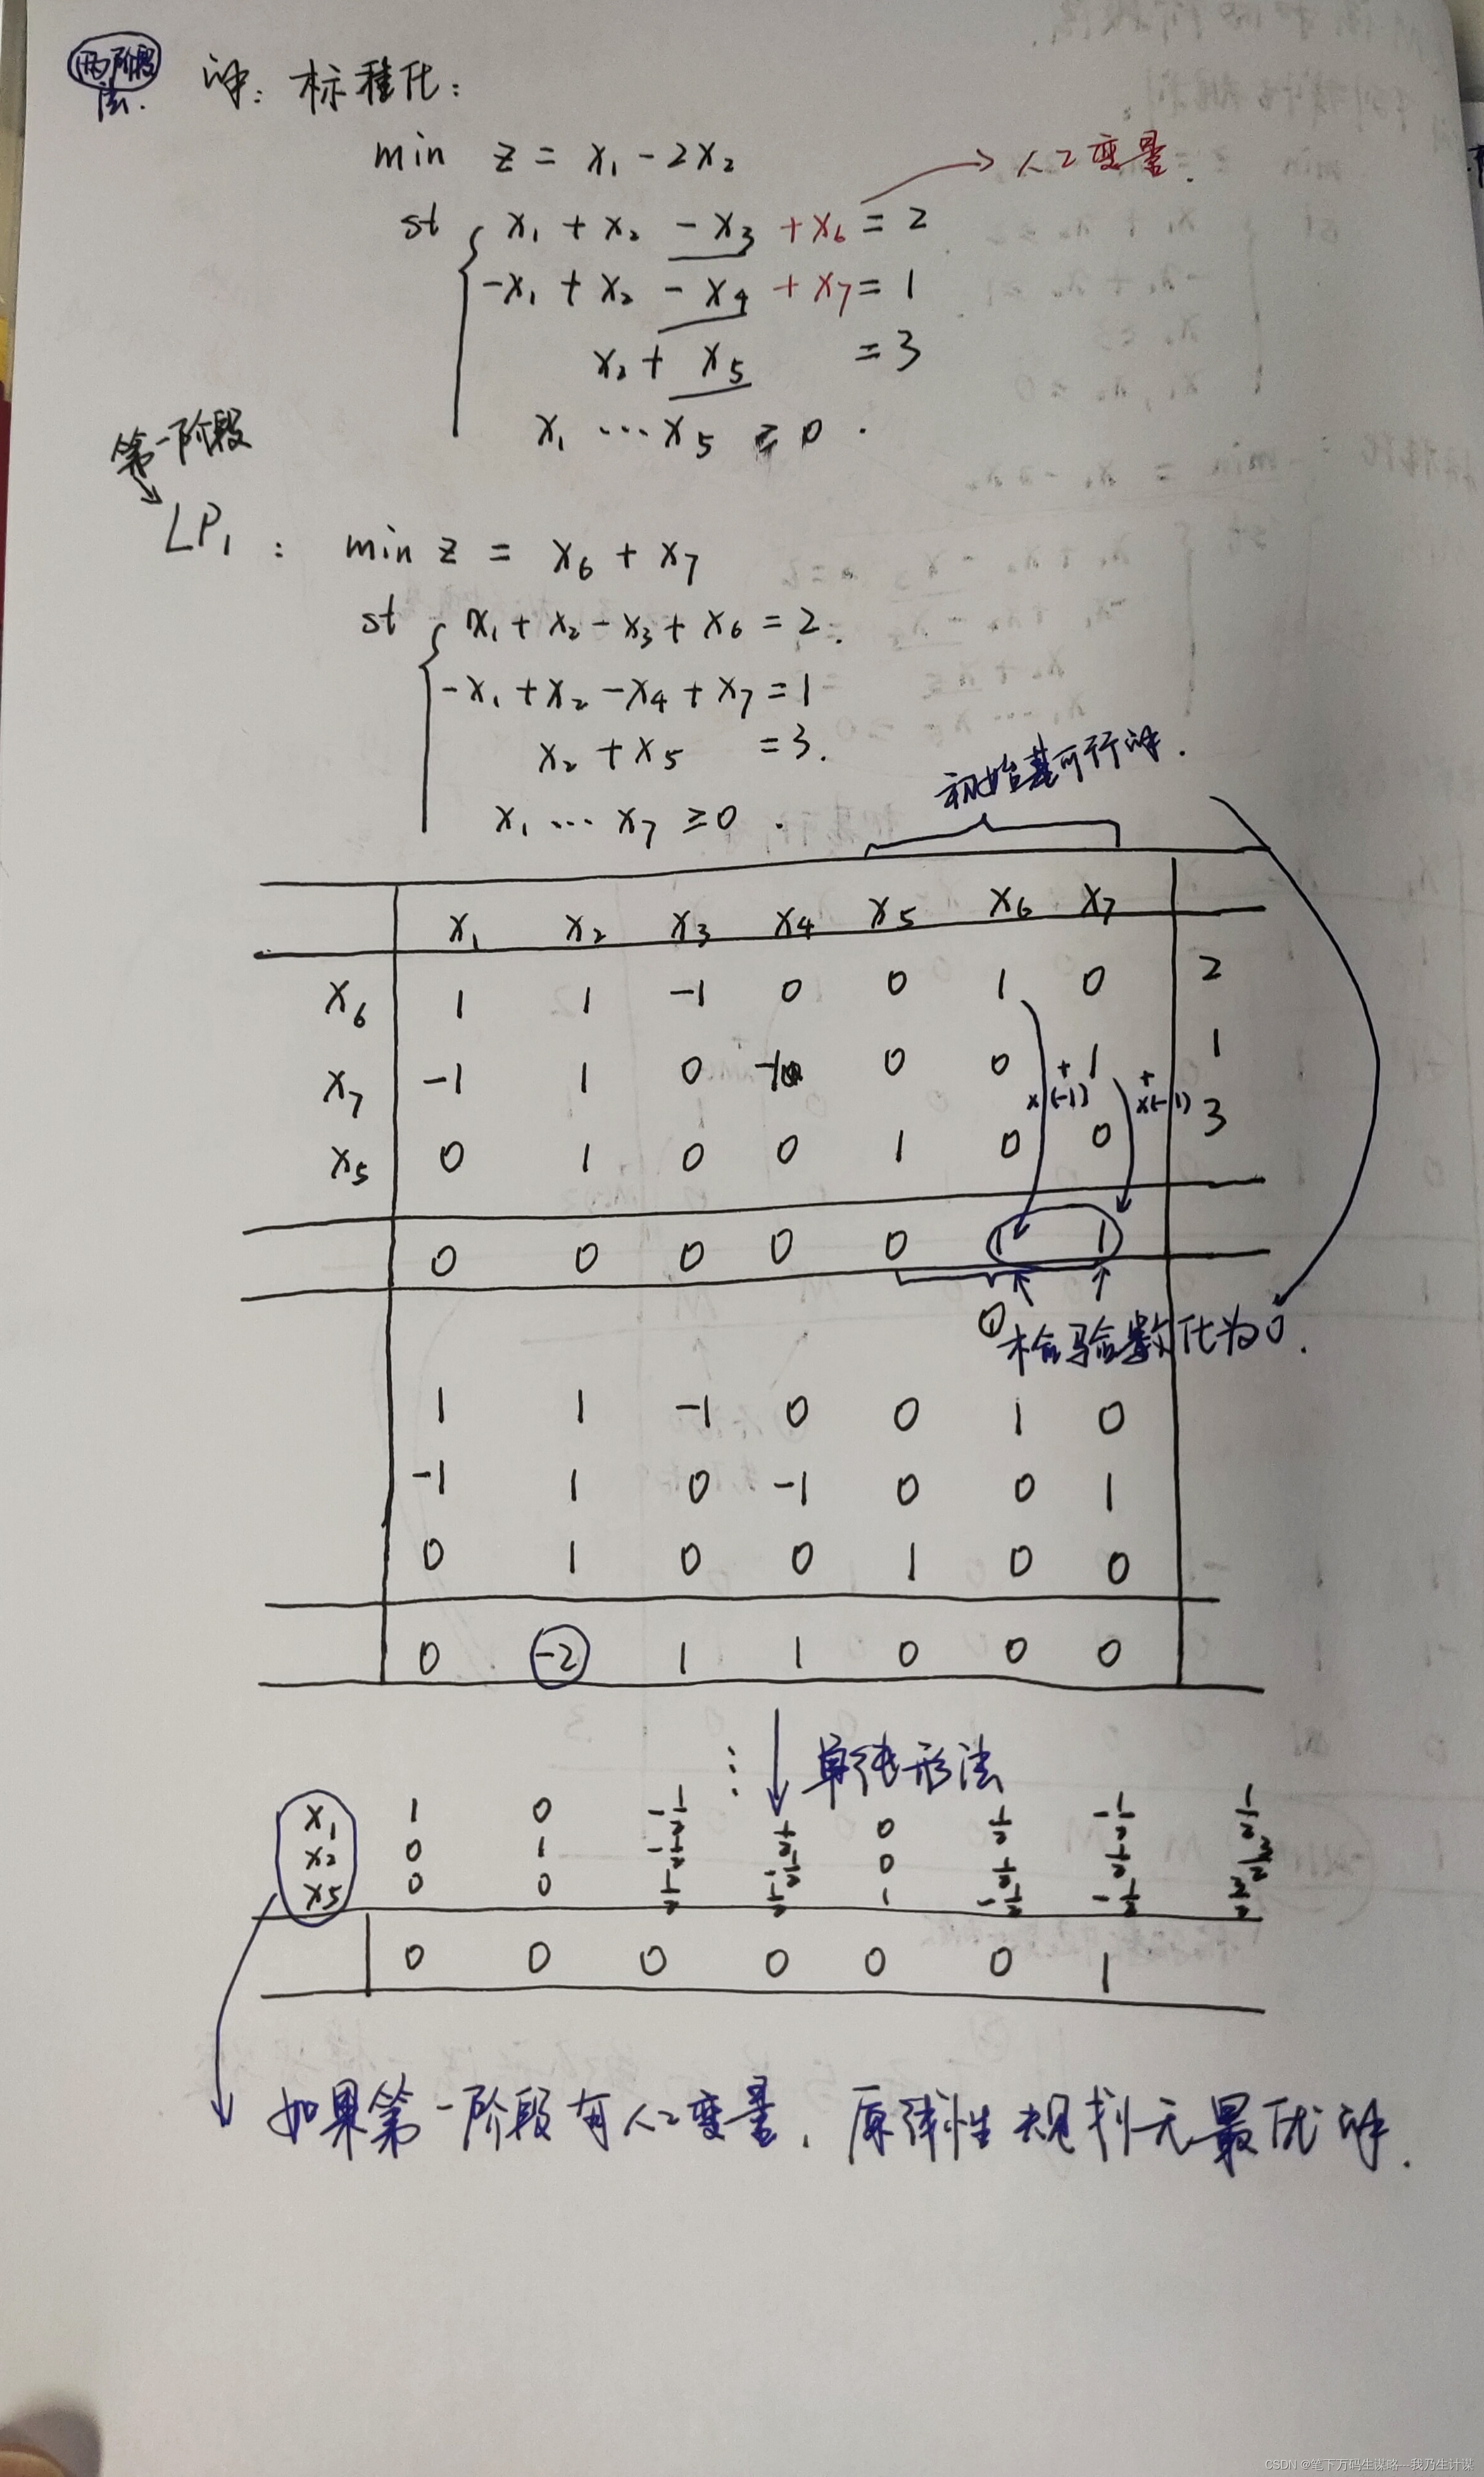 两阶段法.
解: 标准化:
min z = x₁ - 2x₂
→ 人工变量.
st { x₁ + x₂ - x₃ + x₆ = 2
-x₁ + x₂ - x₄ + x₇ = 1
x₂ + x₅ = 3
x₁ ⋯ x₅ ≥ 0 .
第一阶段
LP₁ : min z = x₆ + x₇
st { x₁ + x₂ - x₃ + x₆ = 2.
-x₁ + x₂ - x₄ + x₇ = 1
x₂ + x₅ = 3.
x₁ ⋯ x₇ ≥ 0 .
初始基可行解.
x₁ x₂ x₃ x₄ x₅ x₆ x₇
x₆ 1 1 -1 0 0 1 0 2
x₇ -1 1 0 -1 0 0 1 1
+ ×(-1) + ×(-1)
x₅ 0 1 0 0 1 0 0 3
0 0 0 0 0 1 1
① 检验数化为0.
1 1 -1 0 0 1 0
-1 1 0 -1 0 0 1
0 1 0 0 1 0 0
0 -2 1 1 0 0 0
⋮ ↓ 单纯形法
x₁ 1 0 -1/2 1/2 0 1/2 -1/2 1/2
x₂ 0 1 -1/2 -1/2 0 1/2 1/2 3/2
x₅ 0 0 1/2 1/2 1 -1/2 -1/2 3/2
0 0 0 0 0 0 1
如果第一阶段有人工变量, 原线性规划无最优解.
CSDN @笔下万码生谋略—我乃生计谋